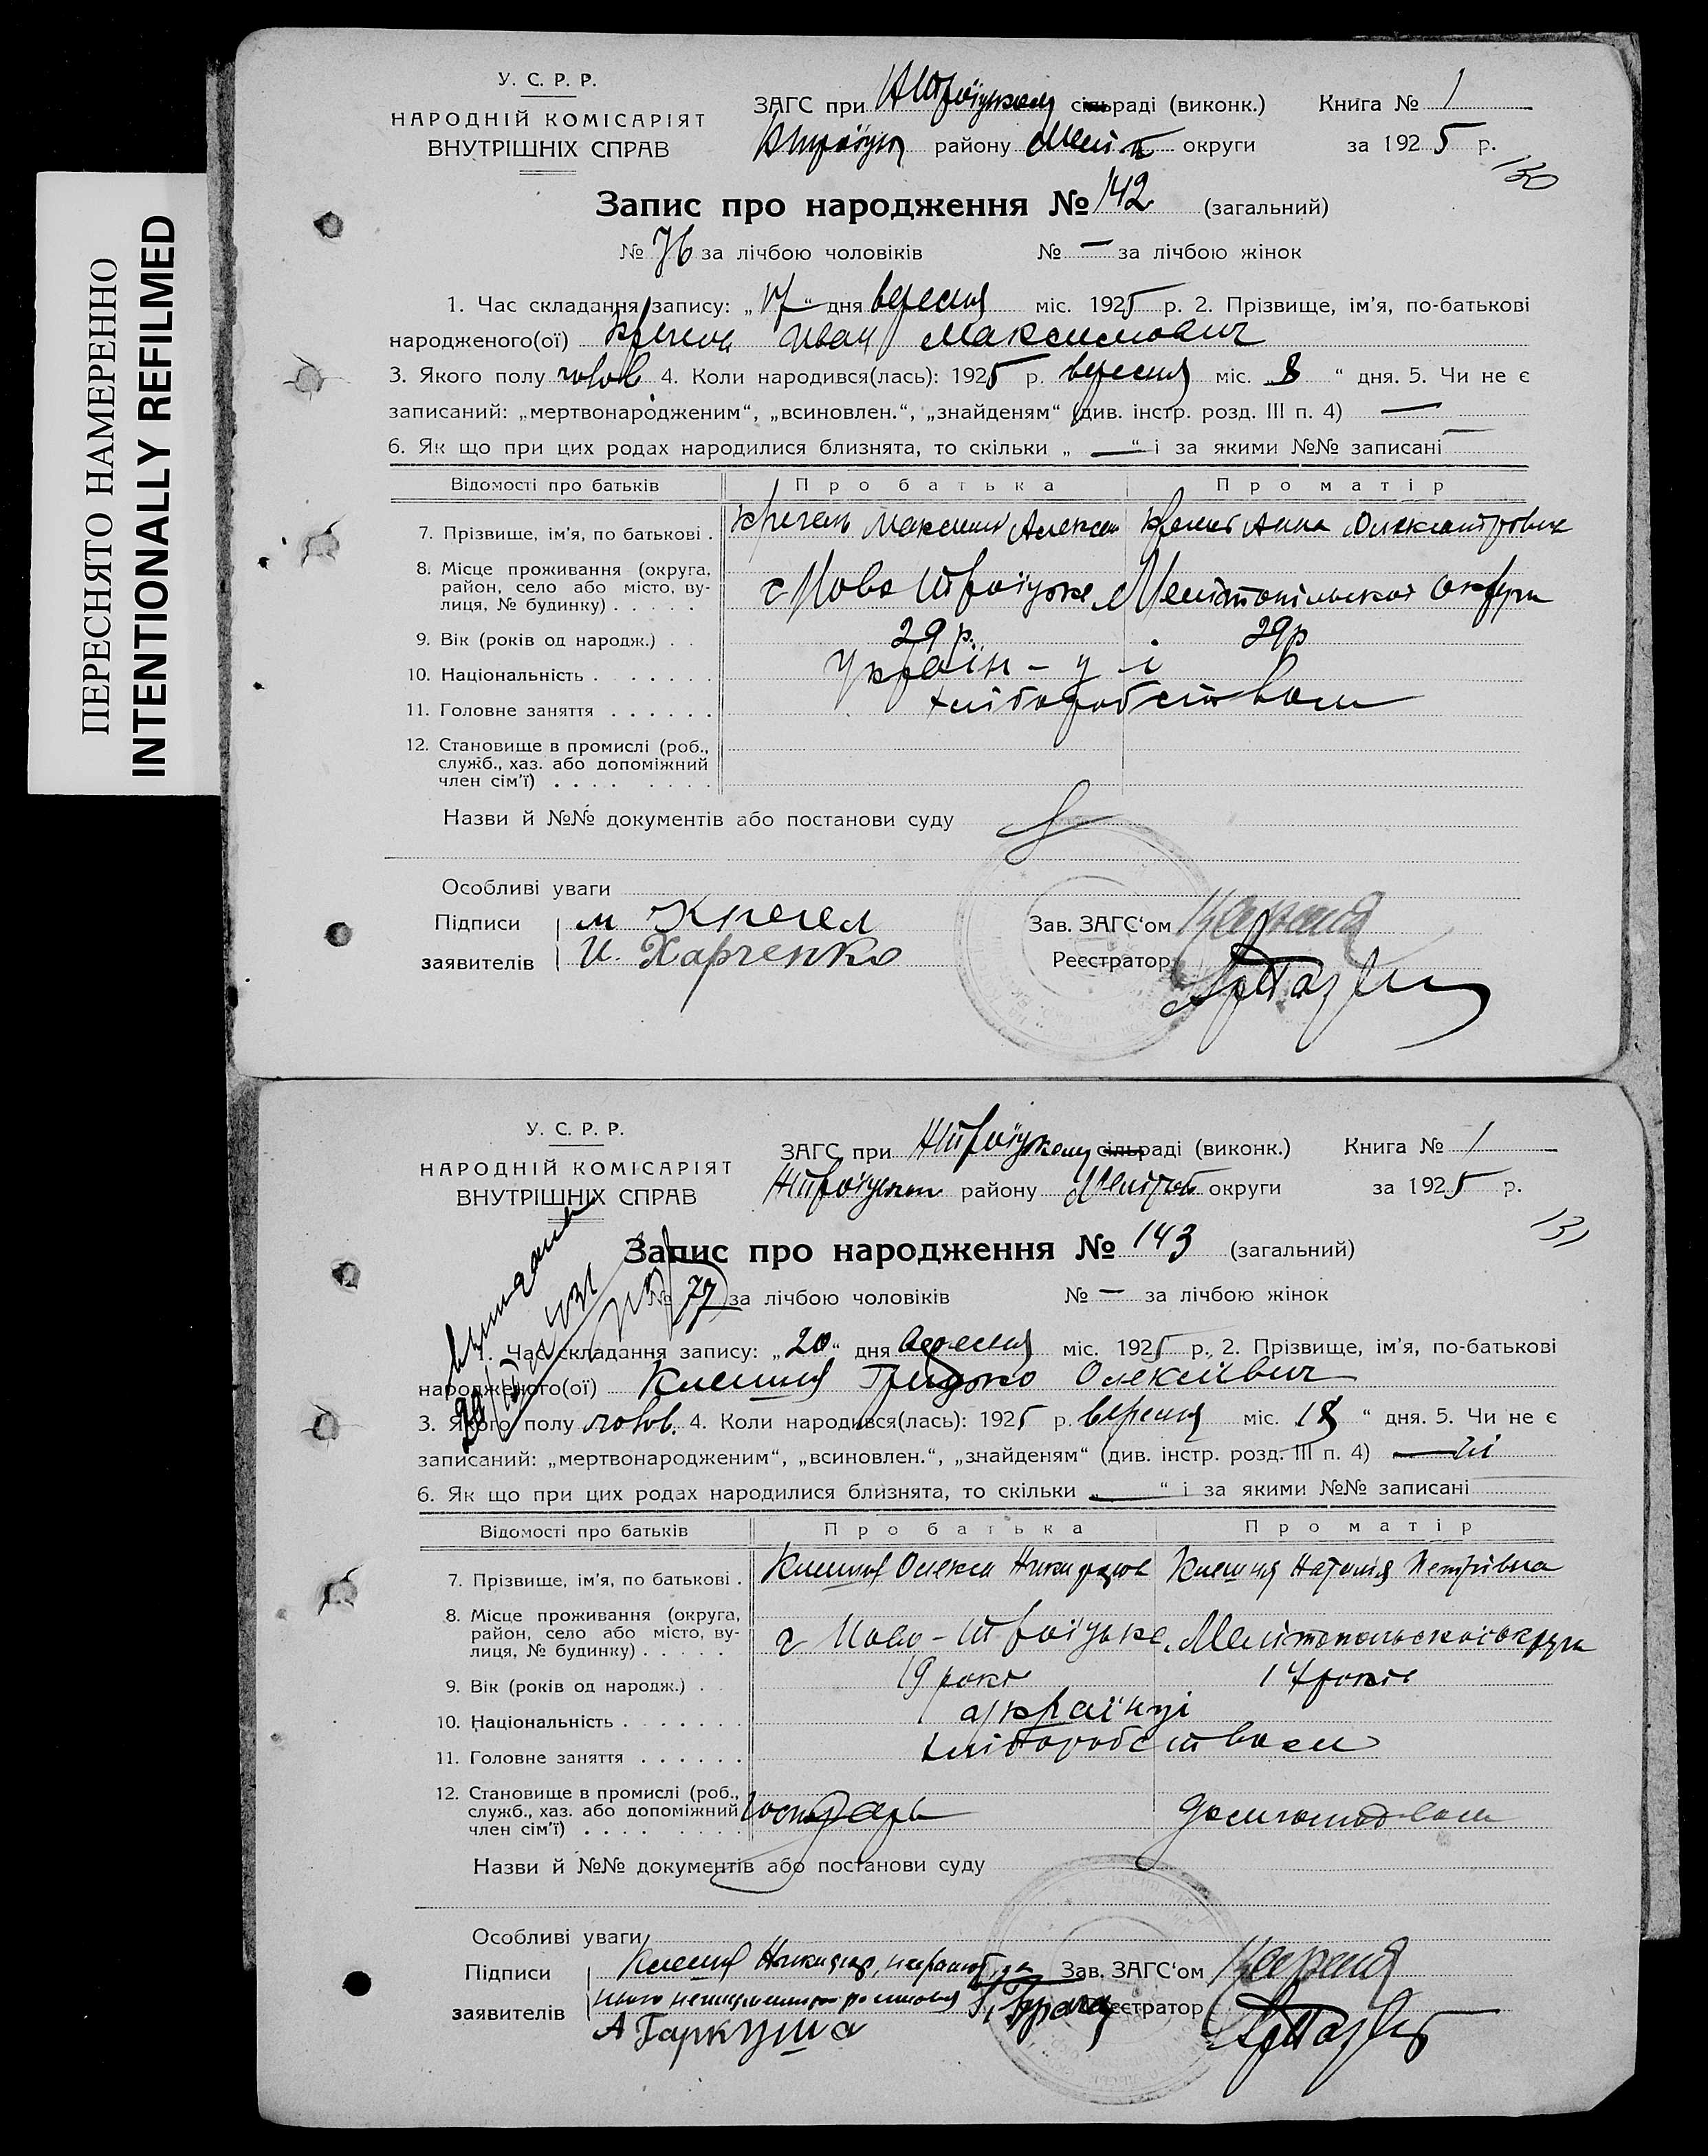 ПЕРЕСНЯТО НАМЕРЕННО
INTENTIONALLY REFILMED
У. С. Р. Р.
НАРОДНІЙ КОМІСАРІЯТ
ВНУТРІШНІХ СПРАВ
ЗАГС при НТроїцкому сільраді (виконк.) Книга № 1
району Меліт округи за 1925 р.
130
Запис про народження № 142 (загальний)
№ 76 за лічбою чоловіків № — за лічбою жінок
1. Час складання запису: „17“ дня вересня міс. 1925 р. 2. Прізвище, ім'я, по-батькові
народженого(ої) Иван Максимович
3. Якого полу чолов. 4. Коли народився(лась): 1925 р. вересня міс. 8 “ дня. 5. Чи не є
записаний: „мертвонародженим“, „всиновлен.“, „знайденям“ (див. інстр. розд. III п. 4) —
6. Як що при цих родах народилися близнята, то скільки „ — “ і за якими №№ записані —
Відомості про батьків Про батька Про матір
7. Прізвище, ім'я, по батькові . Крегель Максим Алексеи Анна Олександровна
8. Місце проживання (округа,
район, село або місто, ву-
лиця, № будинку) . . . . . с Ново Троїцьке Мелітопільскої округи
9. Вік (років од народж.) . . 29 р. 29 р
10. Національність . . . . . . . україн - ц - і
11. Головне заняття . . . . . . хліборобством
12. Становище в промислі (роб.,
служб., хаз. або допоміжний
член сім'ї) . . . . . . . .
Назви й №№ документів або постанови суду
Особливі уваги
Підписи м Крегел Зав. ЗАГС'ом
заявителів И. Харченко Реєстратор
У. С. Р. Р.
НАРОДНІЙ КОМІСАРІЯТ
ВНУТРІШНІХ СПРАВ
ЗАГС при НТроїцкому сільраді (виконк.) Книга № 1
району Меліт округи за 1925 р.
131
Запис про народження № 143 (загальний)
№ 77 за лічбою чоловіків № — за лічбою жінок
1. Час складання запису: „20“ дня вересня міс. 1925 р. 2. Прізвище, ім'я, по-батькові
народженого(ої) Клешня Грицько Олексіївич
3. Якого полу чолов. 4. Коли народився(лась): 1925 р. вересня міс. 18 “ дня. 5. Чи не є
записаний: „мертвонародженим“, „всиновлен.“, „знайденям“ (див. інстр. розд. III п. 4) — ні
6. Як що при цих родах народилися близнята, то скільки „ — “ і за якими №№ записані
Відомості про батьків Про батька Про матір
7. Прізвище, ім'я, по батькові . Клешня Олекси Клешня Наталія Петрівна
8. Місце проживання (округа,
район, село або місто, ву-
лиця, № будинку) . . . . . с Ново-Троїцьке, Мелітопольскої округи
9. Вік (років од народж.) . . 19 років 17 років
10. Національність . . . . . . . українці
11. Головне заняття . . . . . . хліборобством
12. Становище в промислі (роб.,
служб., хаз. або допоміжний
член сім'ї) . . . . . . . . господарь
Назви й №№ документів або постанови суду
Особливі уваги
Підписи Клешня Зав. ЗАГС'ом
заявителів Реєстратор
А Гаркуша